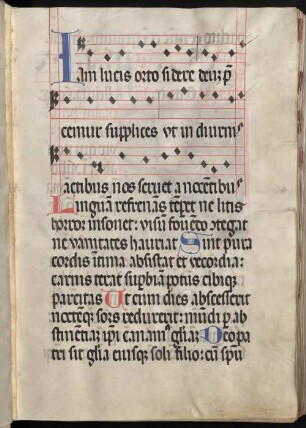 Iam lucis orto sidere deū p̄
cemur supplices vt in diurnis
actibus nos seruet a nocentibus
Linguam refrenās tēpet ne litis
horror insonet: visū fouēdo ɔtegat
ne vanitates hauriat Sint pura
cordis ītima absistat et vecordia:
carnis terat supbiā potus cibiq̄
parcitas Ut cum dies abscesserit
noctēq̄ sors reduxerit: mūdi p ab
stinentiā ipi canam' gl̄iaꝫ Deo pa
tri sit gl̄ia eiusq̄ soli filio: cū spū